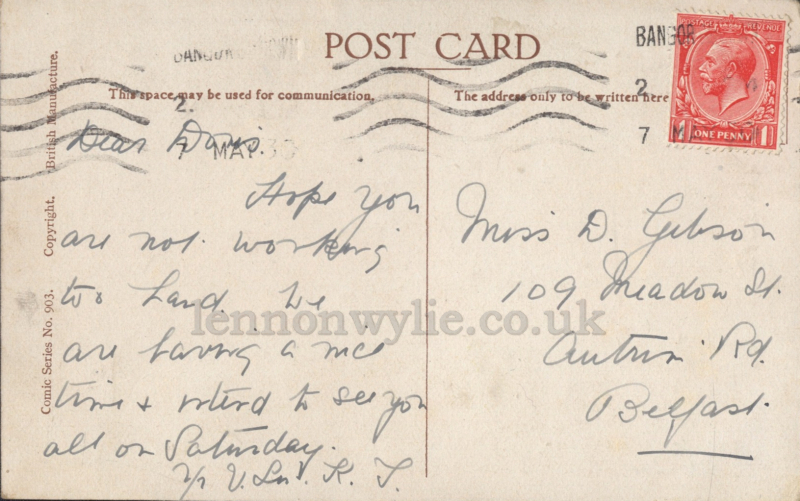 POST CARD
BANGOR
2
7 MA
ONE PENNY
POSTAGE REVENUE
This space may be used for communication.
The address only to be written here
2.
7 MAY 30
Dear Doris.
Hope you
are not working
too hard. We
are having a nice
time & intend to see you
all on Saturday.
Miss D. Gibson
109 Meadow St.
Antrim Rd.
Belfast.
Comic Series No. 903. Copyright. British Manufacture.
lennonwylie.co.uk